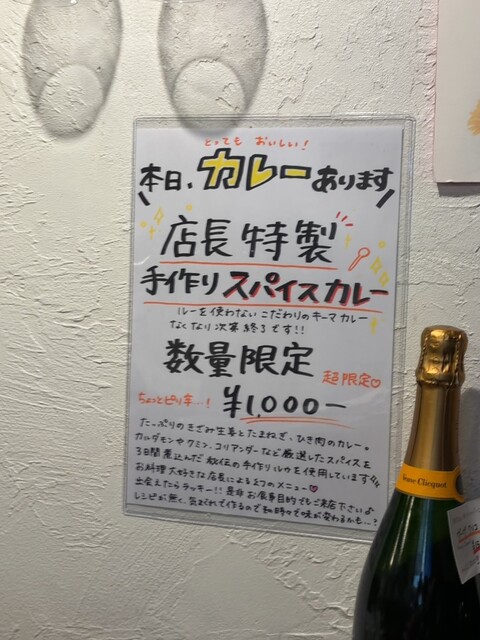 とっても おいしい!
本日、カレーあります
店長特製
手作りスパイスカレー
ルーを使わない こだわりのキーマカレー
なくなり次第終了です!!
数量限定
超限定♡
ちょっとピリ辛…!
¥1,000-
たっぷりのきざみ生姜とたまねぎ、ひき肉のカレー。
カルダモンやクミン、コリアンダーなど厳選したスパイスを
3日間煮込んだ秘伝の手作りルウを使用しています
お料理大好きな店長によるメニュー♡
出会えたらラッキー!! 是非お食事目的でもご来店下さい♪
レシピが無く、気まぐれで作るので その時々で味が変わるかも…?
Veuve Clicquot